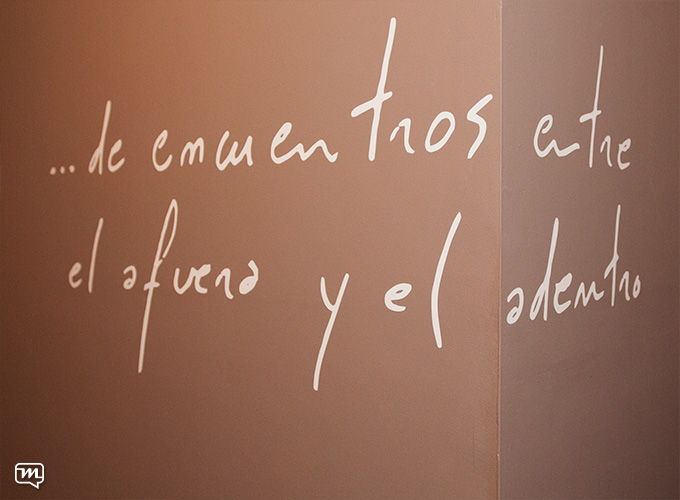 ...de encuentros entre
el afuera y el adentro
m